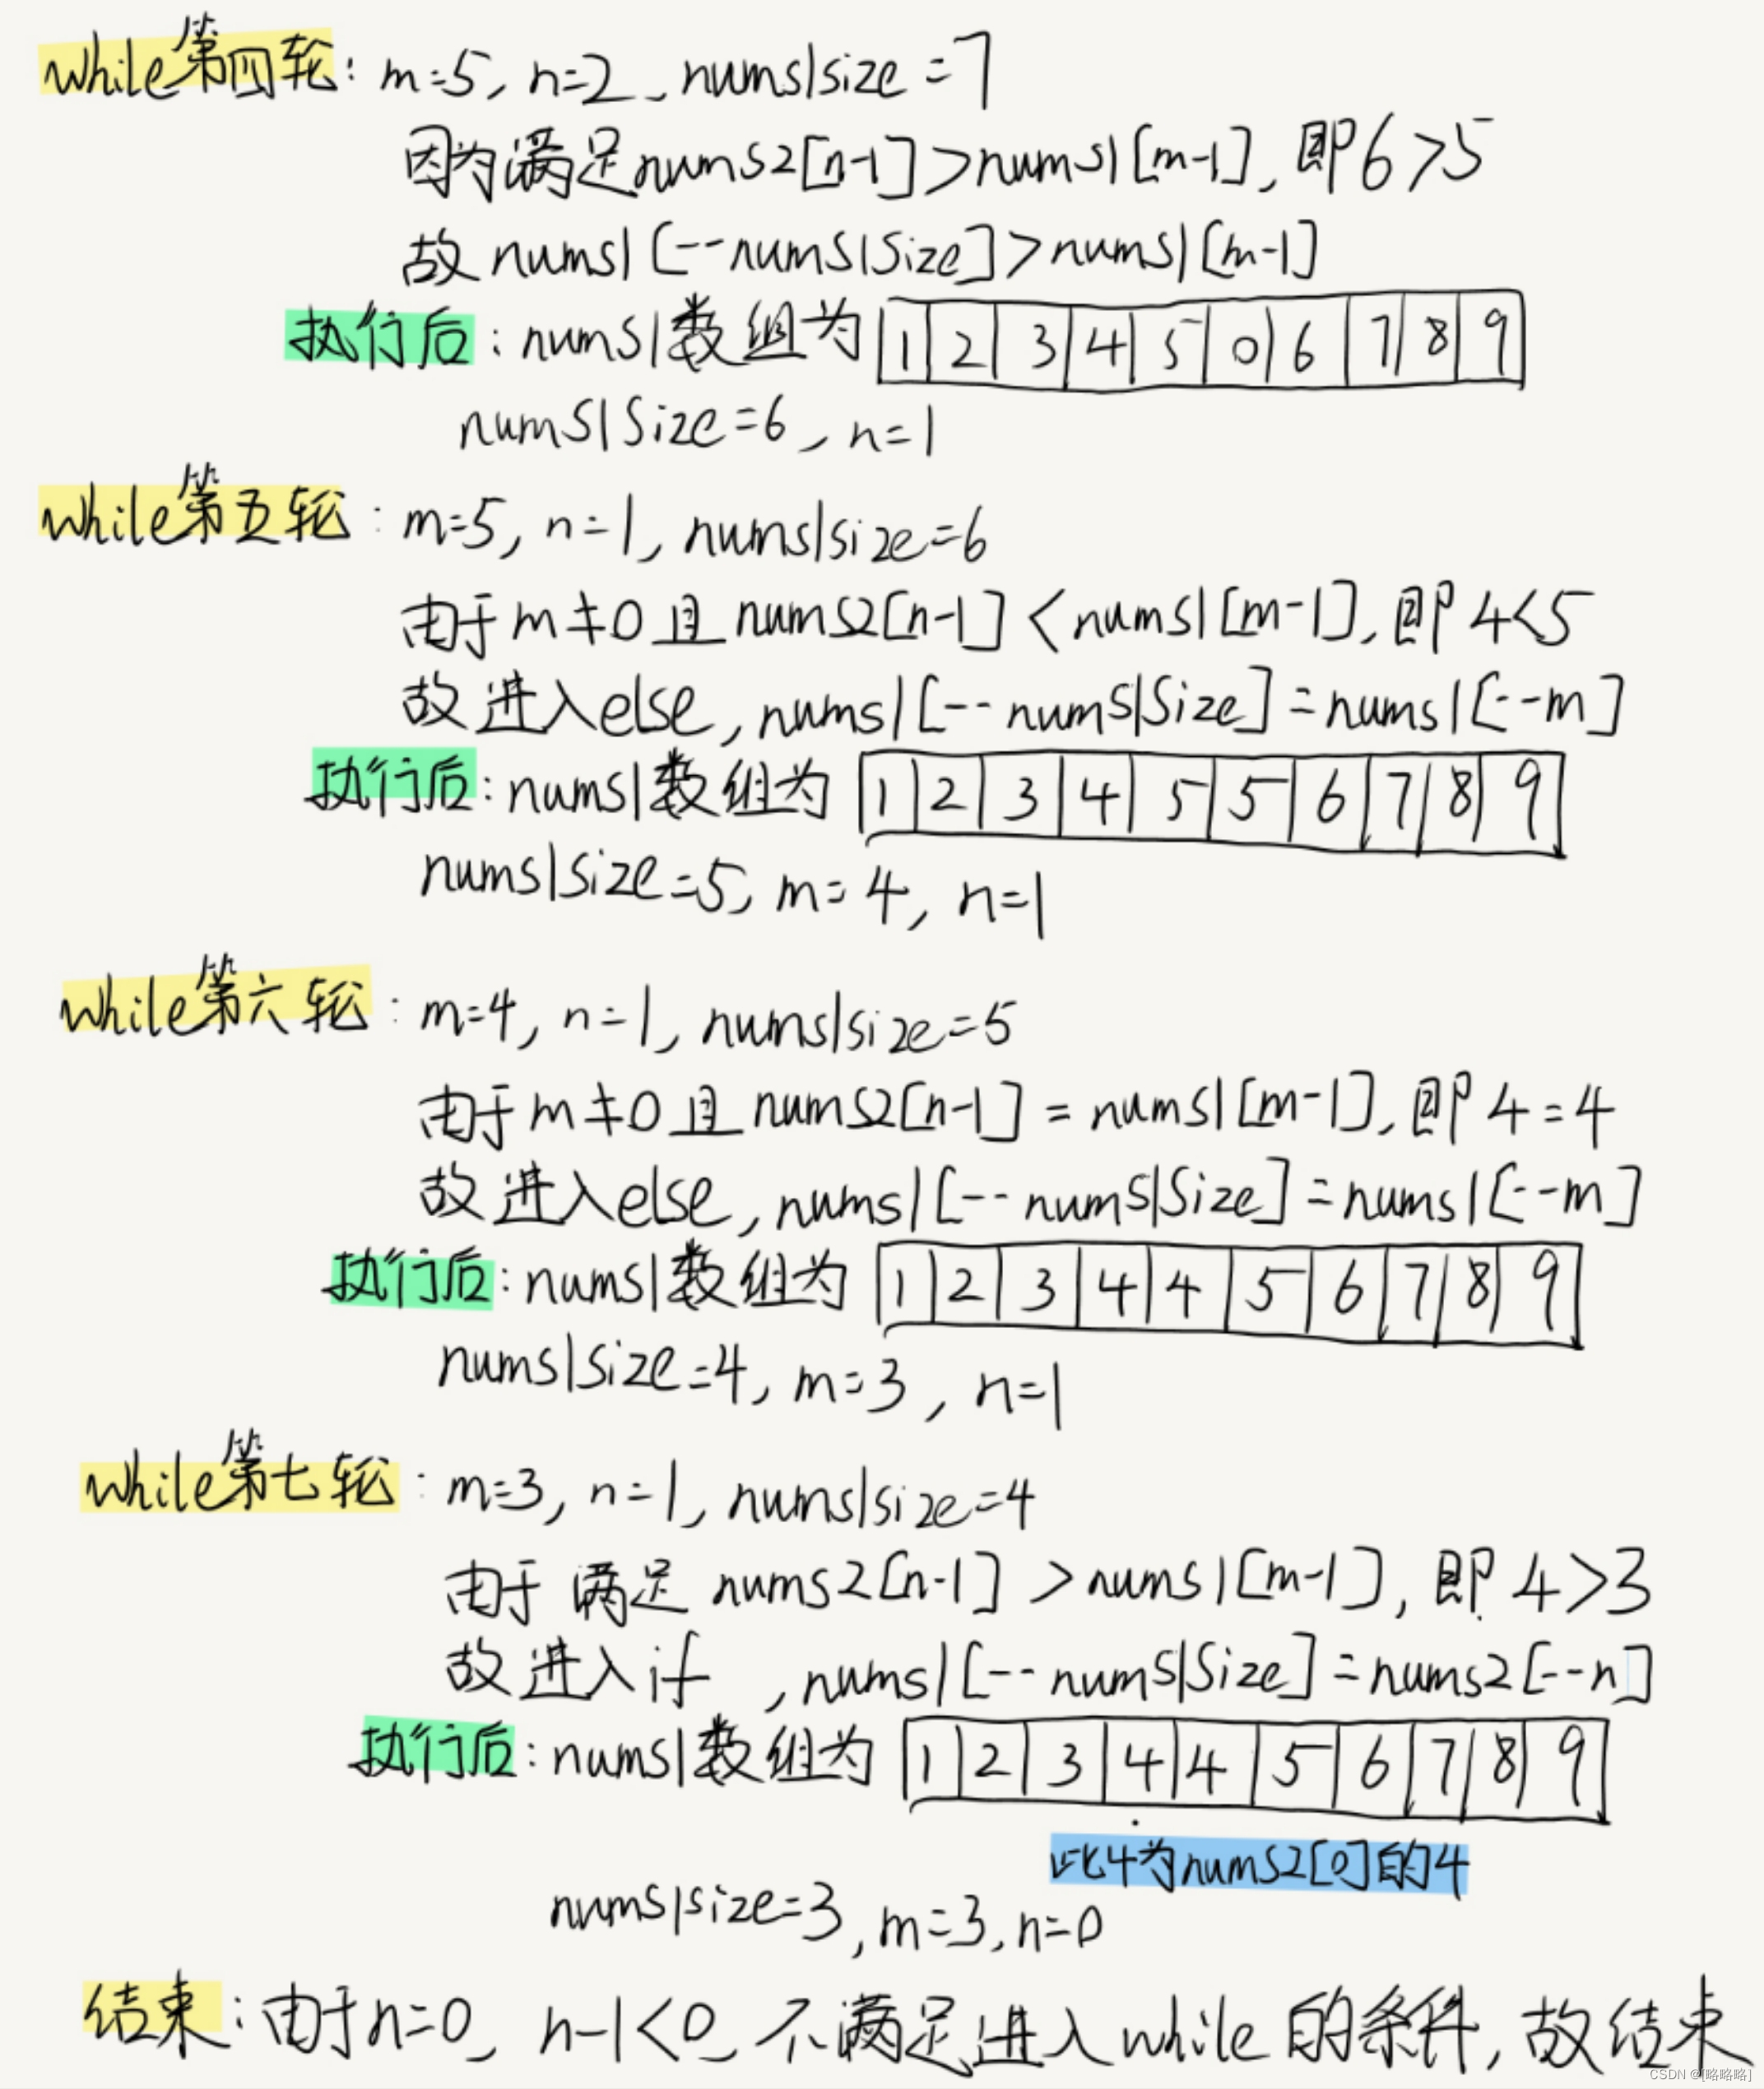 while第四轮：m=5，n=2，nums1size=7
因为满足nums2[n-1]>nums1[m-1]，即6>5
故nums1[--nums1Size]>nums1[m-1]
执行后：nums1数组为 1 2 3 4 5 0 6 7 8 9
nums1Size=6，n=1
while第五轮：m=5，n=1，nums1size=6
由于m≠0且nums2[n-1]<nums1[m-1]，即4<5
故进入else，nums1[--nums1Size]=nums1[--m]
执行后：nums1数组为 1 2 3 4 5 5 6 7 8 9
nums1size=5，m=4，n=1
while第六轮：m=4，n=1，nums1size=5
由于m≠0且nums2[n-1]=nums1[m-1]，即4=4
故进入else，nums1[--nums1Size]=nums1[--m]
执行后：nums1数组为 1 2 3 4 4 5 6 7 8 9
nums1size=4，m=3，n=1
while第七轮：m=3，n=1，nums1size=4
由于满足nums2[n-1]>nums1[m-1]，即4>3
故进入if，nums1[--nums1Size]=nums2[--n]
执行后：nums1数组为 1 2 3 4 4 5 6 7 8 9
此4为nums2[0]的4
nums1size=3，m=3，n=0
结束：由于n=0，n-1<0，不满足进入while的条件，故结束
CSDN @[略略略]